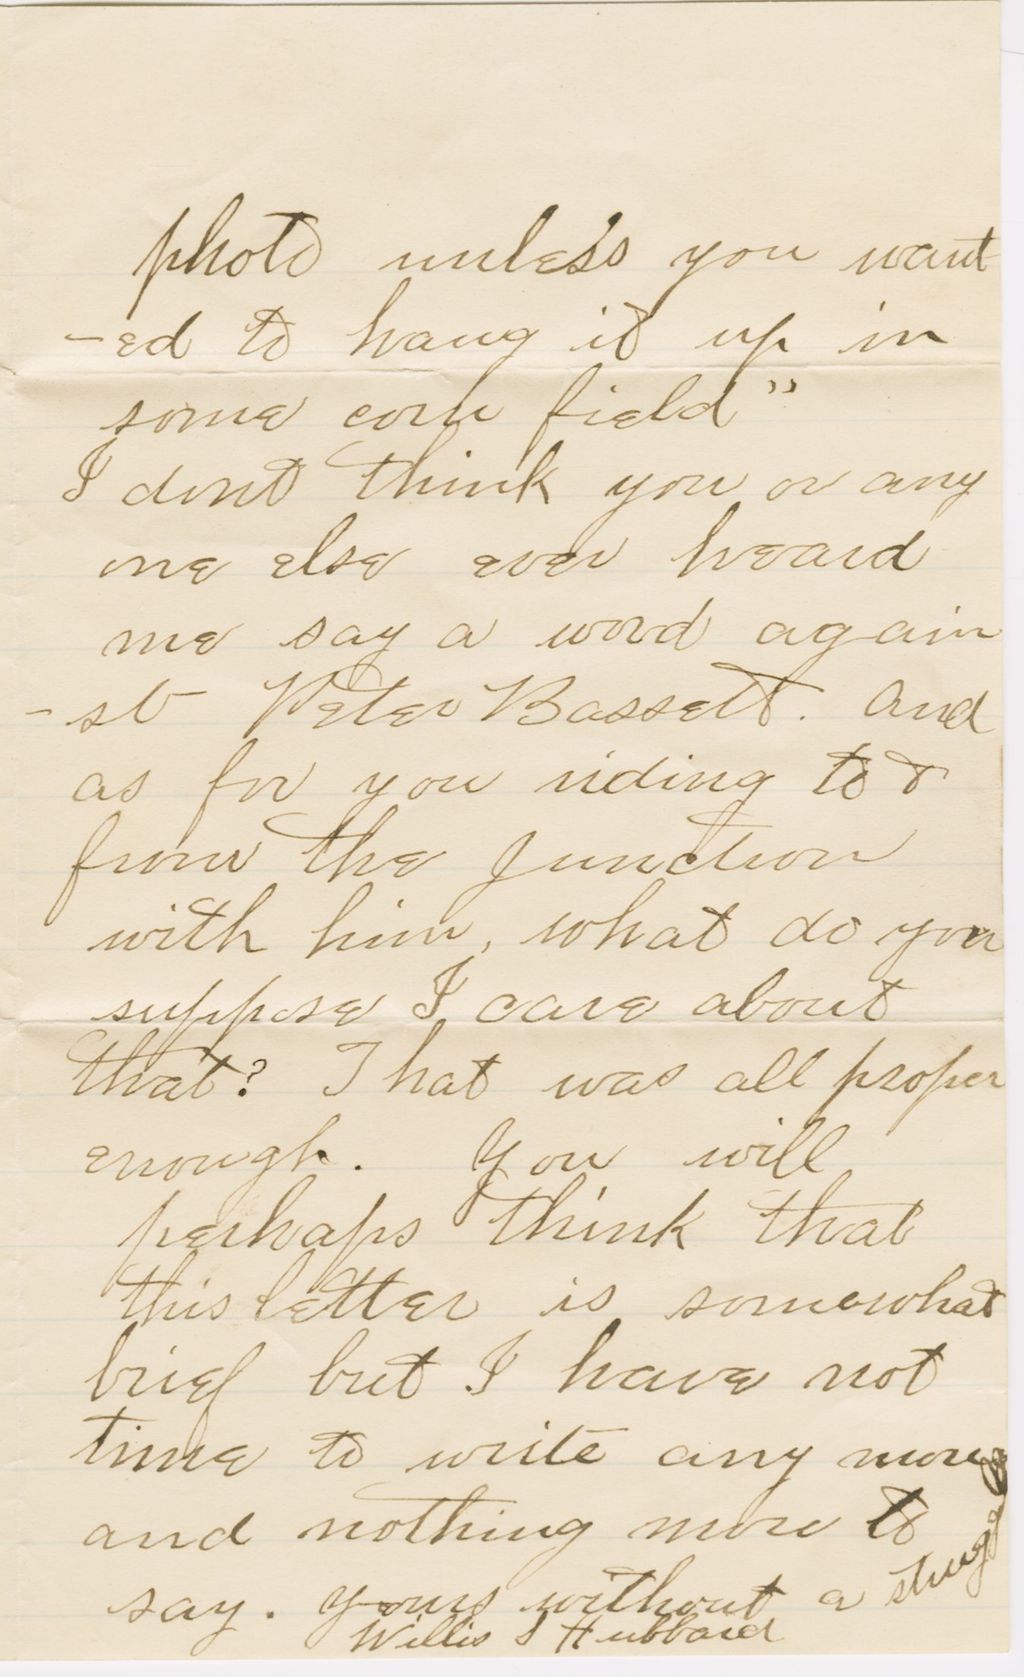 photo unless you want
-ed to hang it up in
some corn field"
I dont think you or any
one else ever heard
me say a word again
-st Peter Bassett. And
as for you riding to &
from the Junction
with him, what do you
suppose I care about
that? That was all proper
enough. You will
perhaps think that
this letter is somewhat
brief but I have not
time to write any more
and nothing more to
say. Yours without a struggle
Willis I Hubbard